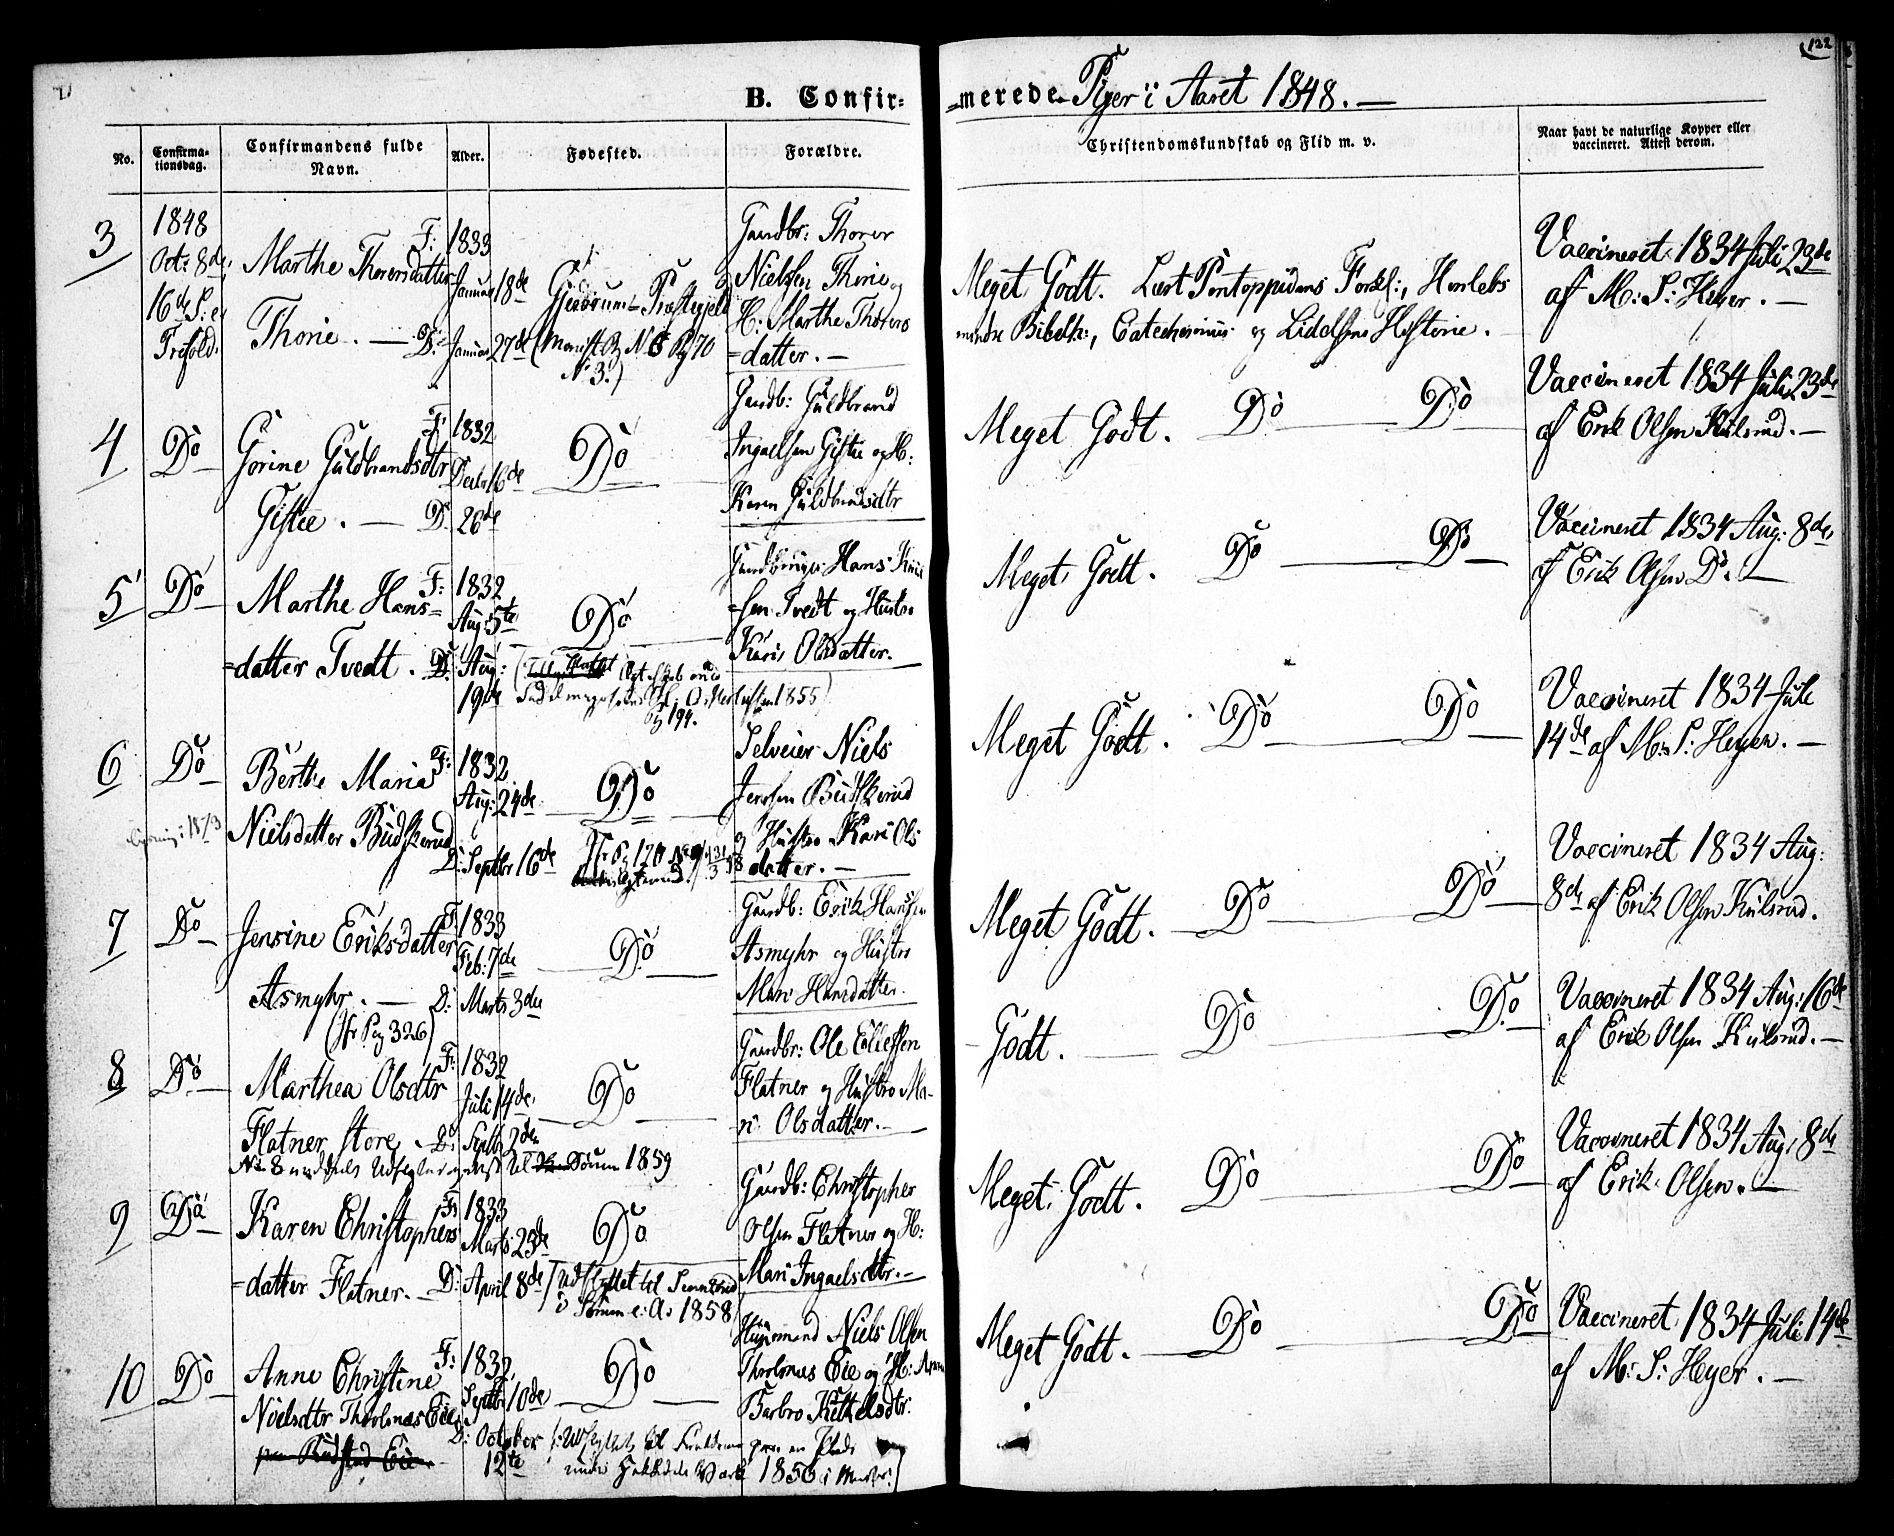 122
B. Confir-
-merede Piger i Aaret 1848. —
No.
Confirma-
tionsdag.
Confirmandens fulde
Navn.
Alder.
Fødested.
Forældre.
Christendomskundskab og Flid m. v.
Naar havt de naturlige Kopper eller
vaccineret. Attest derom.
3
1848
Oct: 8de
16de S: e:
Trefold:
Marthe Thorersdatter
Thorie. —
F: 1833
Januar 18de
D: Januar 27de
Gjerdrums Præstegjeld
No 3.)
Gaardbr: Thorer
Nielsen Thorie og
H: Marthe Thorers
=datter. —
Meget Godt. Læst Pontoppidans Forkl:, Herslebs
mindre Bibelh:, Catechismus og Historie.
Vaccineret 1834 Juli 23de
af M: S: Heyer. —
4
Do
Gorine Guldbrandsdtr
Gistie. —
F: 1832
Decbr 16de
D: 26de
Do
Gaardb: Guldbrand
Ingvelsen Gistie og H:
Karen Guldbrandsdtr
Meget Godt. Do Do
Vaccineret 1834 Juli 23de
af Erik Olsen Kulsrud. —
5
Do
Marthe Hans=
=datter Tvedt.
F: 1832
Aug: 5te
D: Aug:
19de
Do
1855)
Pg 194.
Gaardbruger Hans
=sen Tvedt og Hustro
Kari Olsdatter.
Meget Godt. Do Do
Vaccineret 1834 Aug: 8de
af Erik Olsen Do. —
6
Do
Berthe Maria
Nielsdatter Budskerud
F: 1832
Aug: 24de
D: Septbr 16de
Do
Selveier Niels
Jenssen Budskerud
og Hustro Kari Ols
datter. —
Meget Godt. Do Do
Vaccineret 1834 Juli
14de af M: S: Heyer. —
7
Do
Jensine Eriksdatter
Asmyhr. —
(Jfr Pag 326)
F: 1833
Feb: 7de
D: Marts 3de
Do
Gaardb: Erik Hansen
Asmyhr og Hustro
Mari Hansdatter.
Meget Godt. Do Do
Vaccineret 1834 Aug:
8de af Erik Olsen Kulsrud.
8
Do
Marthea Olsdtr
Flatner store.
F: 1832
Juli 14de
D: Septbr 2den
Do
No 8 meddelt Udflytningsattest til Sørum 1859
Gaardbr: Ole Ellefsen
Flatner og Hustro Ma-
ri Olsdatter. —
Godt. Do Do
Vaccineret 1834 Aug: 16de
af Erik Olsen Kulsrud. —
9
Do
Karen Christophers
=datter Flatner. —
F: 1833
Marts 23de
D: April 8de
Do
(Udflyttet til
i Sørum i A: 1858)
Gaardb: Christopher
Olsen Flatner og H:
Mari Ingvelsdtr. —
Meget Godt. Do Do
Vaccineret 1834 Aug: 8de
af Erik Olsen. —
10
Do
Anne Christine
Nielsdtr Eie
F: 1832
Septbr 10de
D: October
12te
Do
Huusmand Niels Olsen
Eie og H: Anne
Barbro Kettelsdtr.
Meget Godt. Do Do
Vaccineret 1834 Juli 14de
af M: S: Heyer. —